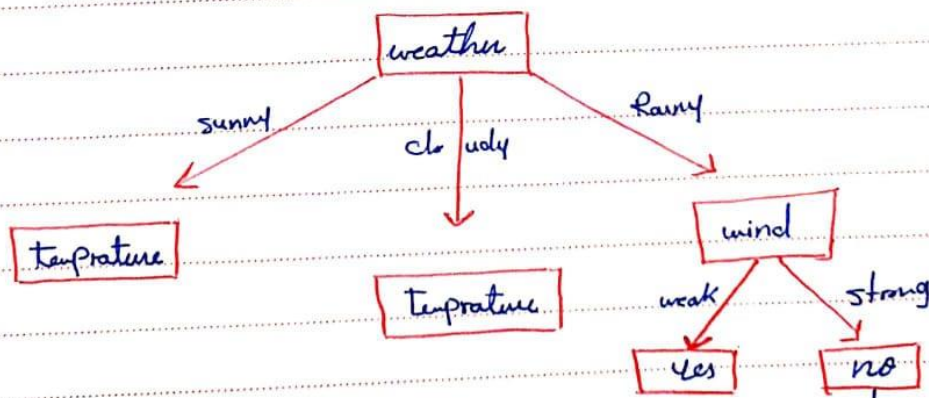 weather
sunny
cloudy
Rainy
temprature
Temprature
wind
weak
strong
yes
no